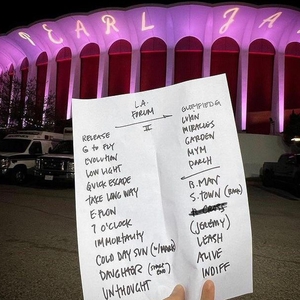 PEARL JA
L.A.
FORUM
II
RELEASE
G to FLY
EVOLUTION
LOW LIGHT
QUICK ESCAPE
TAKE LONG WAY
E-FLOW
7 O'CLOCK
IMMORTALITY
COLD DAY SUN (w/
DAUGHTER
UNTHOUGHT
LUKIN
MIRACLES
GARDEN
MYM
PORCH
B. MAN
S. TOWN
(JEREMY)
LEASH
ALIVE
INDIFF